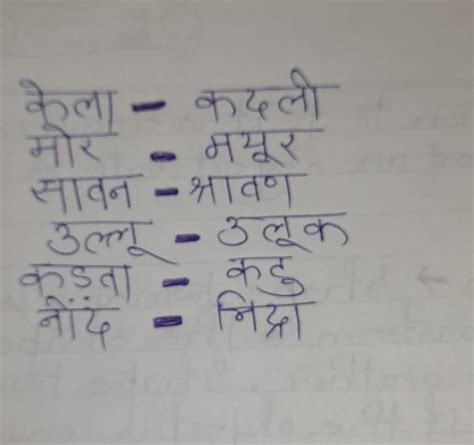 केला - कदली
मोर - मयूर
सावन - श्रावण
उल्लू - उलूक
कड़वा - कटु
नींद - निद्रा